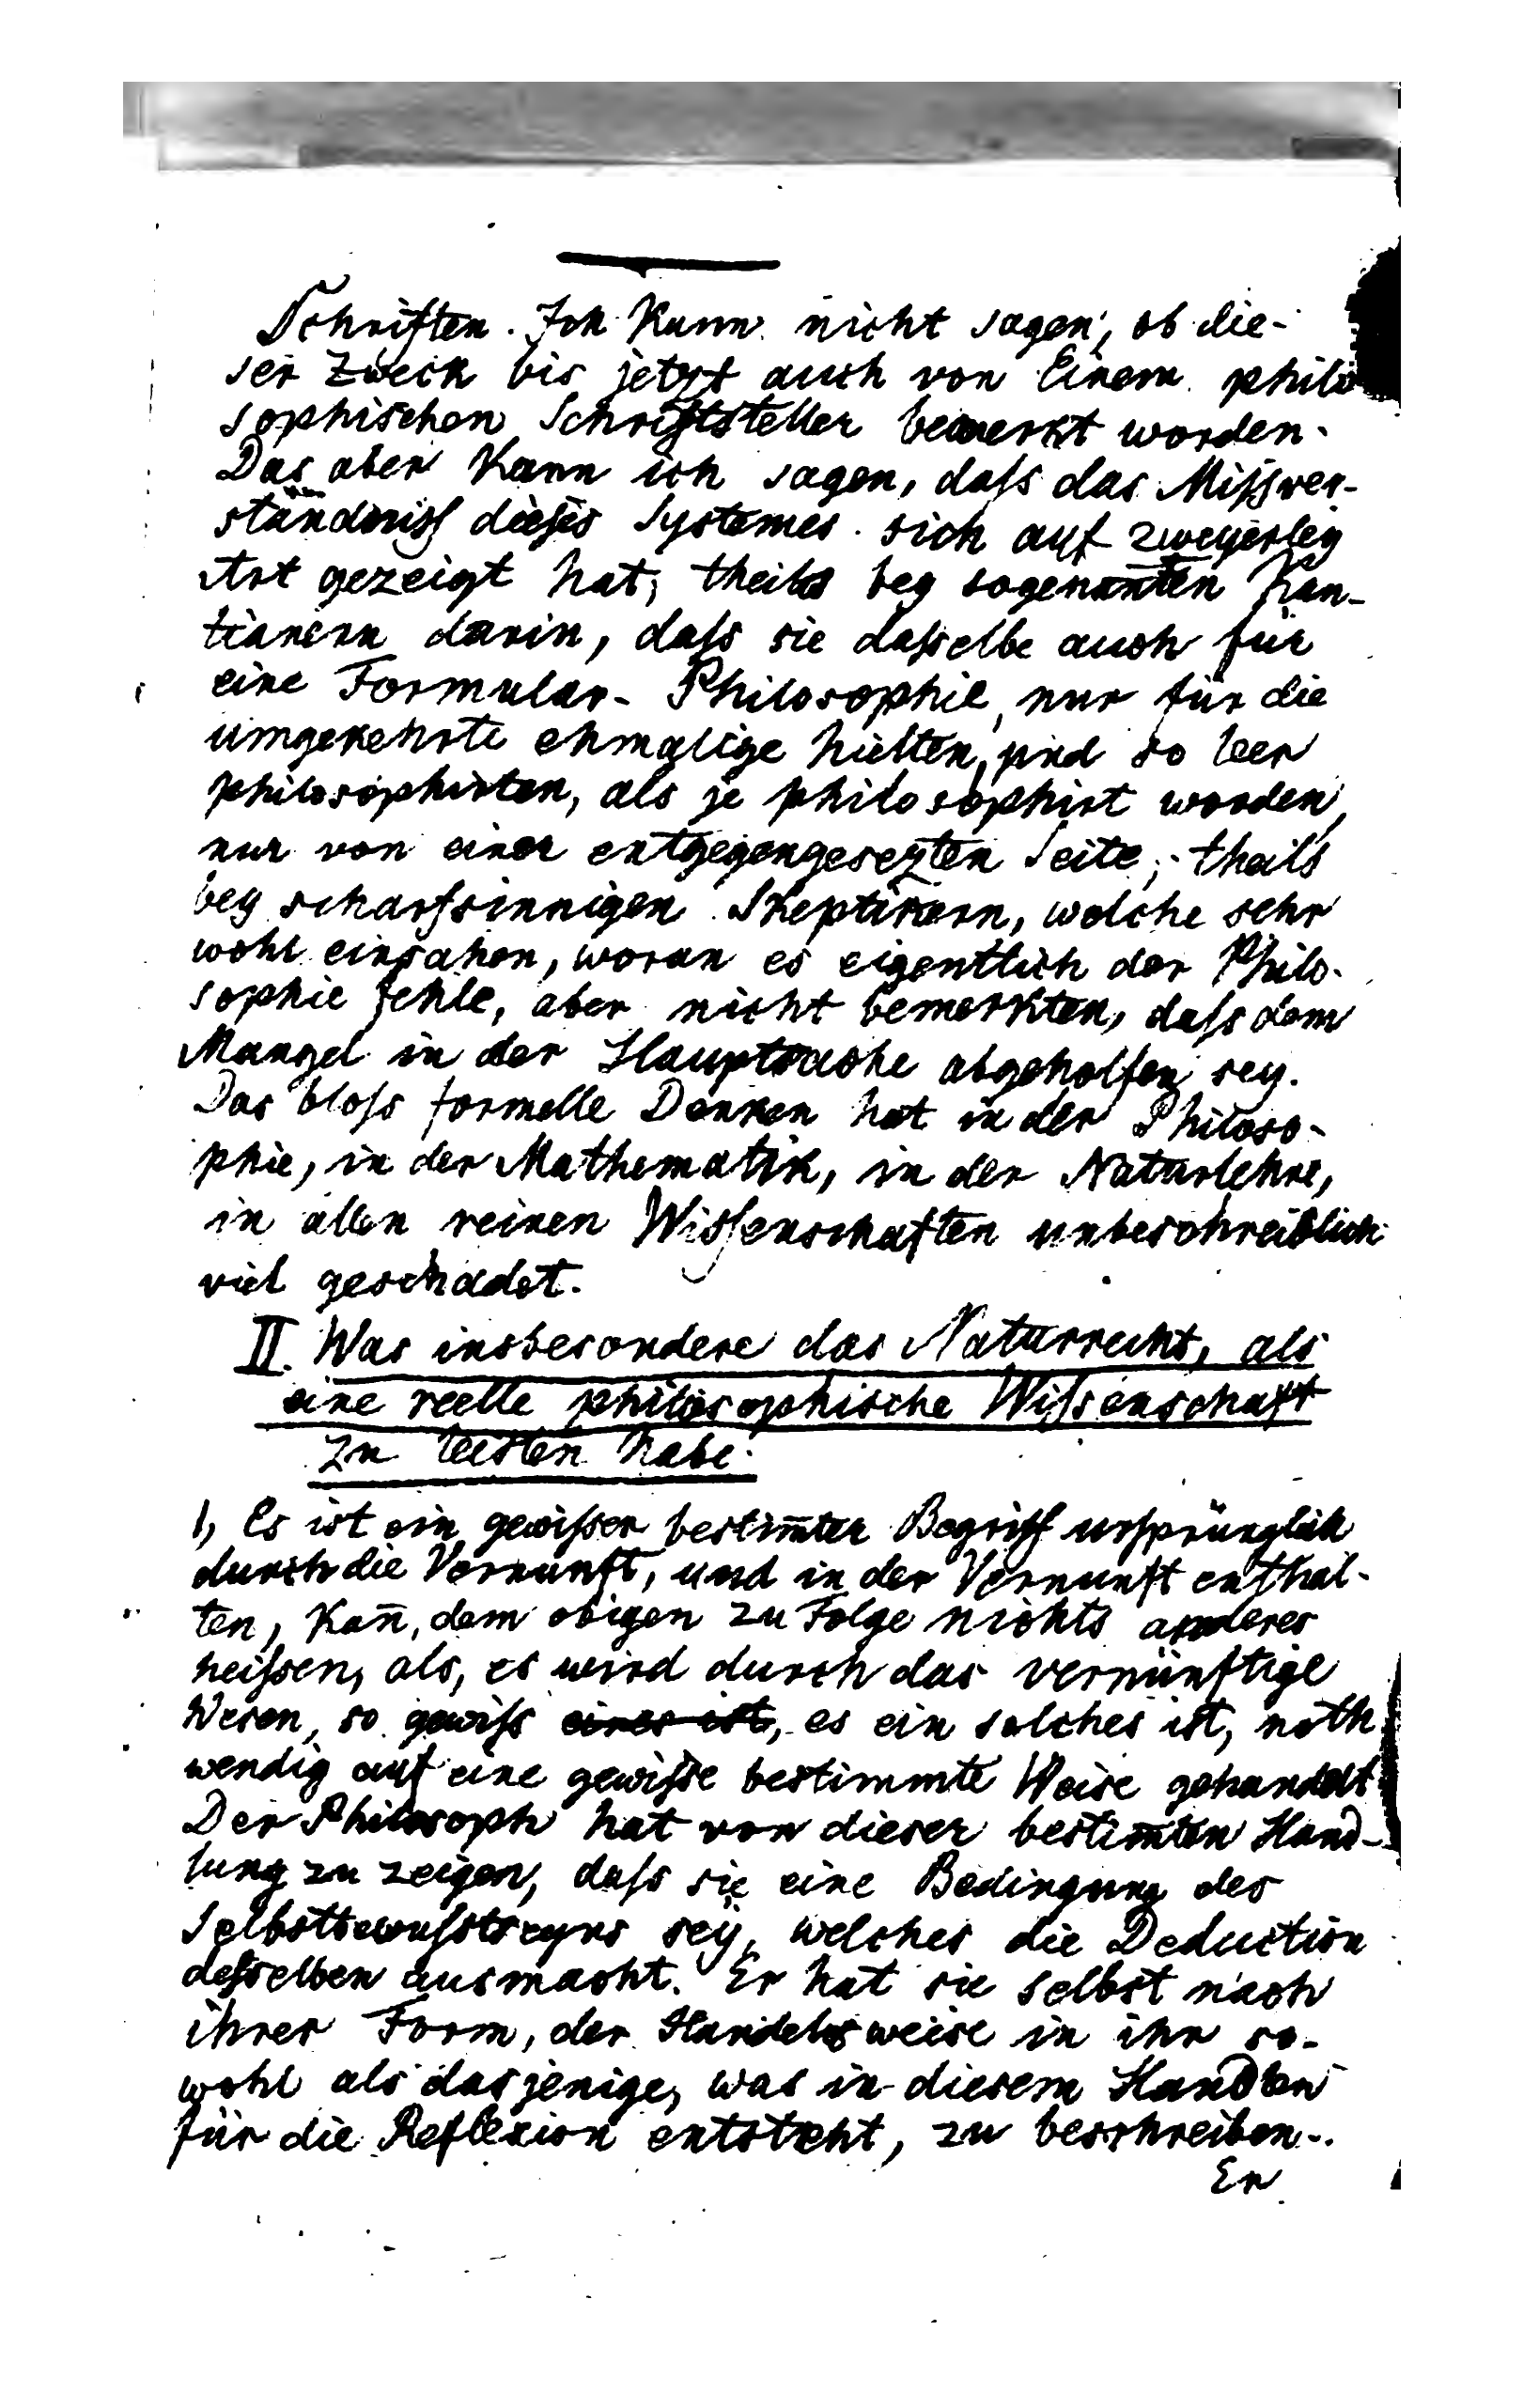 Schriften. Ich Kann nicht sagen, ob die-
ser Zweck bis jetzt auch von Einem philo
sophischen Schriftsteller bemerkt worden.
Das aber Kann ich sagen, daſs das Miſsver-
ständniſs dieses Systemes sich auf zweyerley
Art gezeigt hat, theils bey sogenanten Kan-
tianern darin, daſs sie daſselbe auch für
eine Formular-Philosophie, nur für die
umgekehrte ehmalige hielten, und so leer
philosophirten, als je philosophirt worden,
nur von einer entgegengesezten Seite; theils
bey scharfsinnigen Skeptikern, welche sehr
wohl einsahen, woran es eigentlich der Philo-
sophie fehle, aber nicht bemerkten, daſs dem
Mangel in der Hauptsache abgeholfen sey.
Das bloſs formelle Denken hat in der Philoso-
phie, in der Mathematik, in der Naturlehre,
in allen reinen Wiſsenschaften unbeschreiblich
viel geschadet.
II. Was insbesondere das Naturrecht, als
eine reelle philosophische Wiſsenschaft
zu leisten habe.
1, Es ist ein gewiſser bestim̅ter Begriff ursprünglich
durch die Vernunft, und in der Vernunft enthal-
ten, Kan̅, dem obigen zu Folge nichts anderes
heiſsen, als, es wird durch das vernünftige
Wesen, so gewiſs eines ist, es ein solches ist, noth
wendig auf eine gewiſse bestimmte Weise gehandelt
Der Philosoph hat von dieser bestim̅ten Hand-
lung zu zeigen, daſs sie eine Bedingung des
Selbstbewuſstseyns seÿ, welches die Deduction
deſselben ausmacht. Er hat sie selbst nach
ihrer Form, der Handelsweise in ihr so-
wohl als dasjenige, was in diesem Handlen
für die Reflexion entsteht, zu beschreiben.
Er